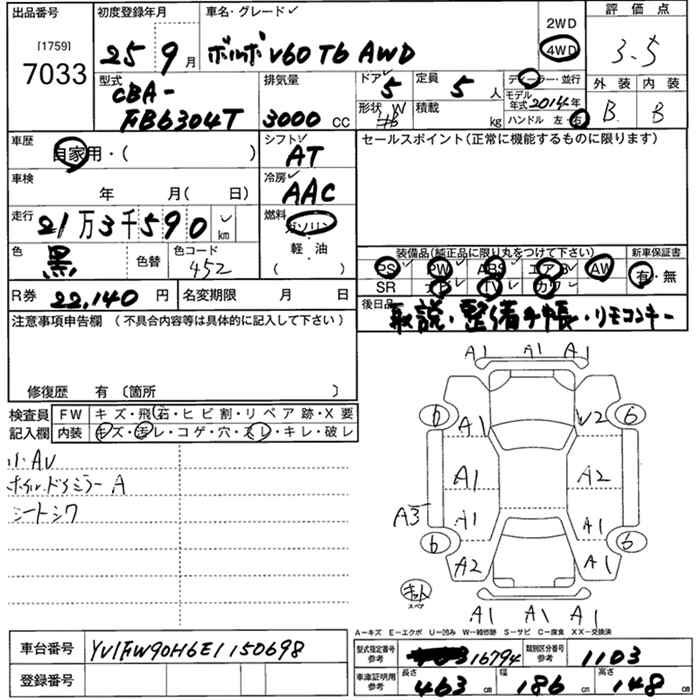 出品番号
[1759]
7033
初度登録年月
25 9月
車名・グレード
ボルボ V60 T6 AWD
2WD
4WD
評価点
3.5
外装 内装
B B
型式
CBA-
FB6304T
排気量
3000 CC
ドア 5
定員 5人
形状 W
積載 kg
ディーラー・並行
モデル年式 2014年
ハンドル 左・右
車歴
自家用・( )
シフト
AT
車検
年 月( 日)
冷房
AAC
走行
21万3千590 km
燃料
ガソリン
軽・油
( )
色 黒 色替
色コード 452
R券 22,140 円
名変期限 月 日
セールスポイント(正常に機能するものに限ります)
装備品(純正品に限り丸をつけて下さい)
PS PW ABS エアB AW
SR ナビ TV カワ
新車保証書
有・無
後日品 取説・整備手帳・リモコンキー
注意事項申告欄 (不具合内容等は具体的に記入して下さい)
修復歴 有 〔箇所 〕
検査員記入欄
FW キズ・飛石・ヒビ割・リペア跡・X要
内装 キズ・汚レ・コゲ・穴・スレ・キレ・破レ
小・AU
ホイル、ドアミラーA
シートシワ
A1 A1 A1
6 A1 V2 6
A1 A2
A3 A1 A1
6 A2 A1 6
キット
スペア
A1 A1 A1
A-キズ E-エクボ U-凹み W-補修跡 S-サビ C-腐食 XX-交換済
車台番号 YV1FW90H6E1150698
登録番号
型式指定番号 参考 16794
類別区分番号 参考 1103
車庫証明用 参考
長さ 463 cm
幅 186 cm
高さ 148 cm